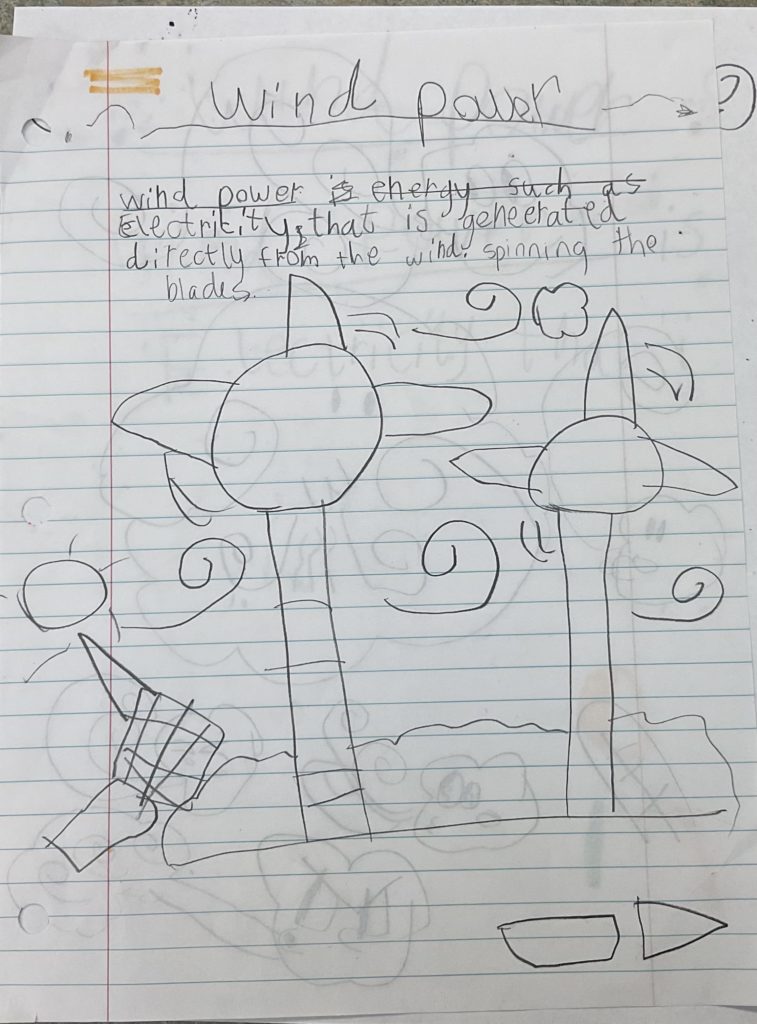 Wind power
wind power is energy such as
Electrikity, that is geneerated
directly from the wind. spinning the
blades.